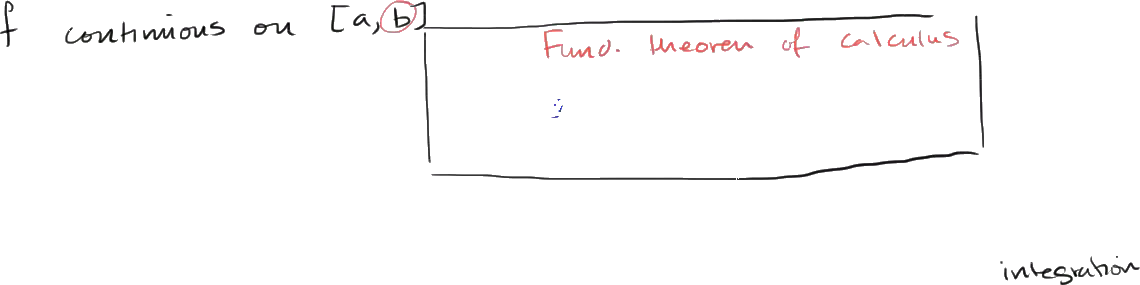 f continious on [a, b]
Fund. theorem of calculus
integration